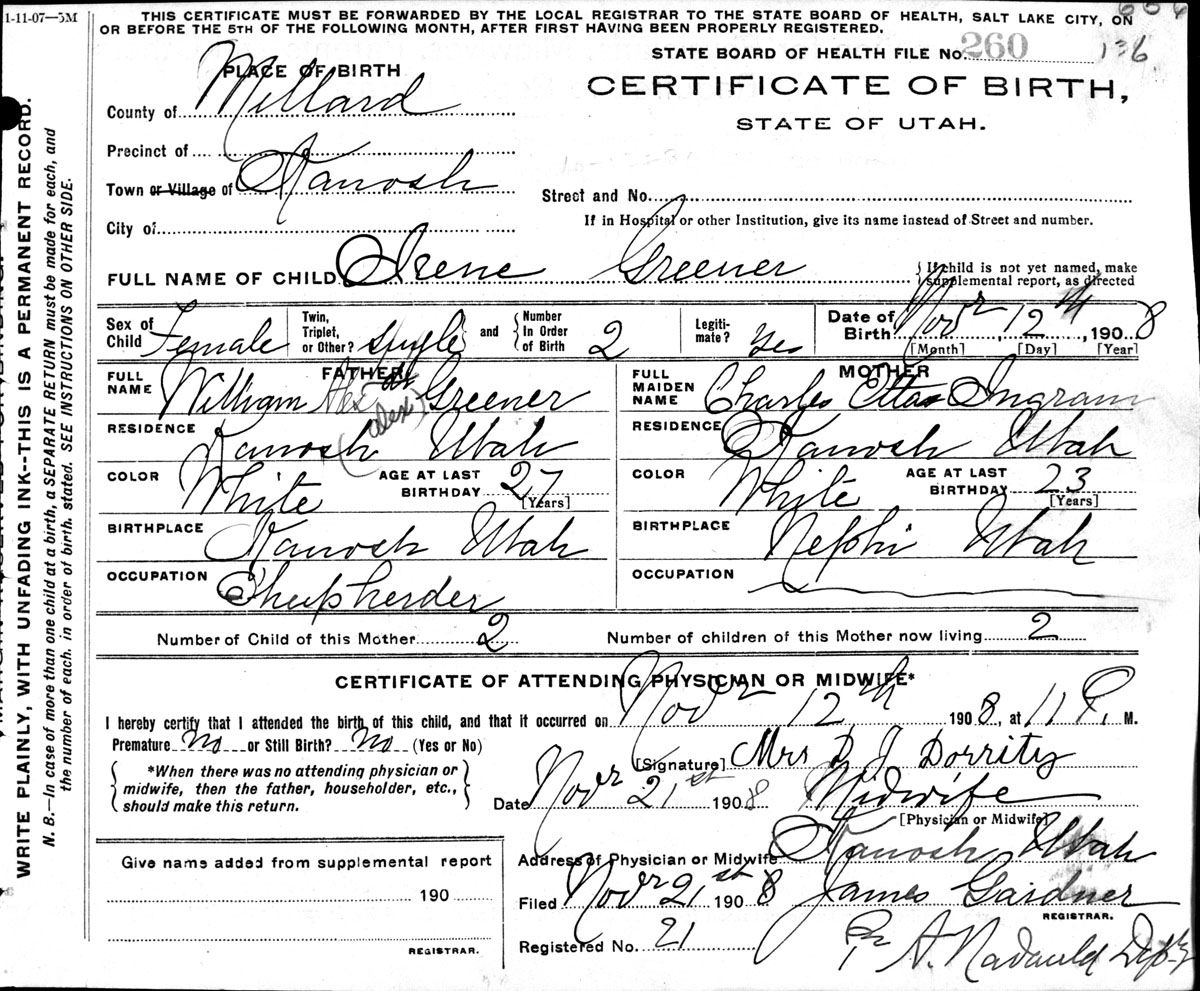 1-11-07—5M
THIS CERTIFICATE MUST BE FORWARDED BY THE LOCAL REGISTRAR TO THE STATE BOARD OF HEALTH, SALT LAKE CITY, ON
OR BEFORE THE 5TH OF THE FOLLOWING MONTH, AFTER FIRST HAVING BEEN PROPERLY REGISTERED.
STATE BOARD OF HEALTH FILE No. 260 136
PLACE OF BIRTH
CERTIFICATE OF BIRTH,
STATE OF UTAH.
County of Millard
Precinct of
Town or Village of Kanosh
Street and No.
City of
If in Hospital or other Institution, give its name instead of Street and number.
FULL NAME OF CHILD Irene Greener
{If child is not yet named, make
supplemental report, as directed
Sex of Child Female
Twin, Triplet, or Other? single
and {Number In Order of Birth 2
Legiti-mate? Yes
Date of Birth Novr 12th, 1908
[Month] [Day] [Year]
FATHER
FULL NAME William Alexdr Greener
(Alex)
RESIDENCE Kanosh Utah
COLOR White AGE AT LAST BIRTHDAY 27 [Years]
BIRTHPLACE Kanosh Utah
OCCUPATION Sheepherder
MOTHER
FULL MAIDEN NAME Charles Etta Ingram
RESIDENCE Kanosh Utah
COLOR White AGE AT LAST BIRTHDAY 23 [Years]
BIRTHPLACE Nephi Utah
OCCUPATION
Number of Child of this Mother 2 Number of children of this Mother now living 2
CERTIFICATE OF ATTENDING PHYSICIAN OR MIDWIFE*
I hereby certify that I attended the birth of this child, and that it occurred on Novr 12th 1908, at 11 P. M.
Premature No or Still Birth? No (Yes or No)
[Signature] Mrs D J Dorrity
{*When there was no attending physician or
midwife, then the father, householder, etc.,
should make this return.}
Date Novr 21st 1908 Midwife
[Physician or Midwife]
Address of Physician or Midwife Kanosh Utah
Filed Novr 21st 1908 James Gardner
REGISTRAR.
Registered No. 21
Pr A. Nadauld Dpty
Give name added from supplemental report
190
REGISTRAR.
WRITE PLAINLY, WITH UNFADING INK--THIS IS A PERMANENT RECORD.
N. B.—In case of more than one child at a birth, a SEPARATE RETURN must be made for each, and
the number of each, in order of birth, stated. SEE INSTRUCTIONS ON OTHER SIDE.